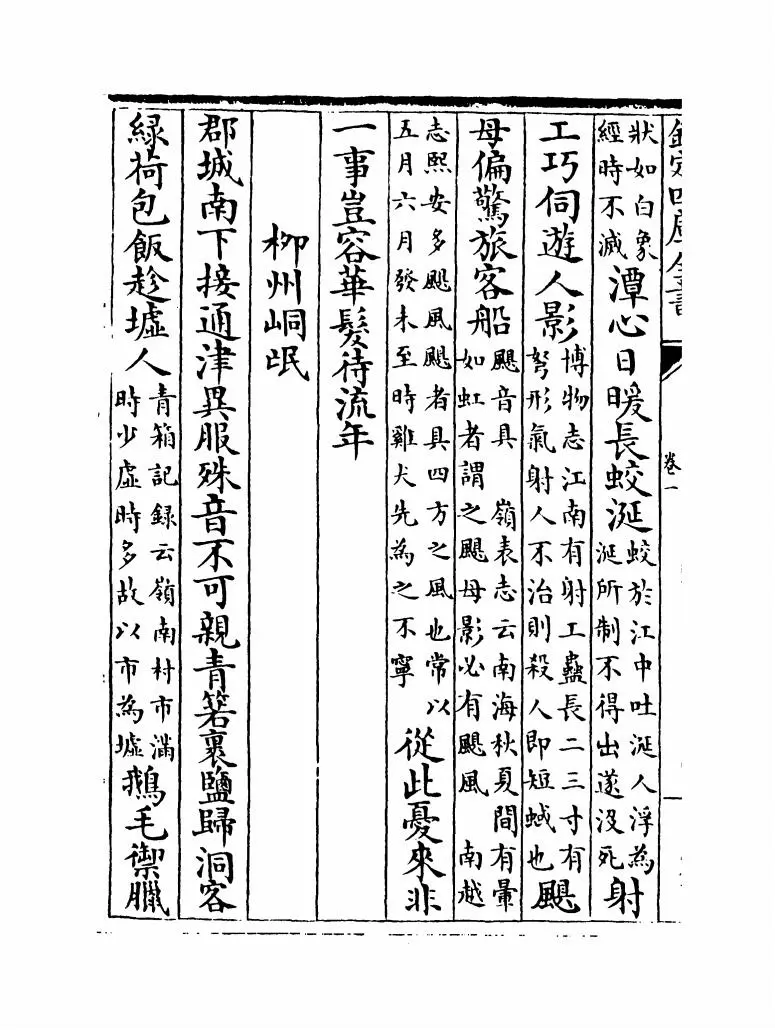 欽定四庫全書 卷一
狀如白象經時不滅潭心日暖長蛟涎蛟於江中吐涎人浮為涎所制不得出遂没死射
工巧伺遊人影博物志江南有射工蟲長二三寸有弩形氣射人不治則殺人即短蜮也颶
母偏驚旅客船颶音具 嶺表志云南海秋夏間有暈如虹者謂之颶母影必有颶風 南越
志熙安多颶風颶者具四方之風也常以五月六月發未至時雞犬先為之不寧從此憂來非
一事豈容華髮待流年
柳州峒氓
郡城南下接通津異服殊音不可親青箬裹鹽歸洞客
緑荷包飯趁墟人青箱記録云嶺南村市滿時少虚時多故以市為墟鵝毛禦臘